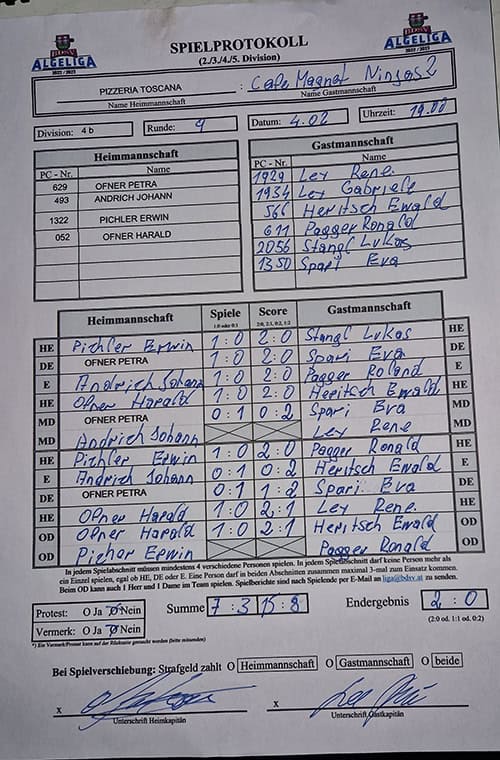 BDSV
ALGELIGA
2022 / 2023
SPIELPROTOKOLL
(2./3./4./5. Division)
BDSV
ALGELIGA
2022 / 2023
PIZZERIA TOSCANA : Cafe Magnet Ninjas 2
Name Heimmannschaft Name Gastmannschaft
Division: 4 b Runde: 4 Datum: 4.02 Uhrzeit: 19.00
Heimmannschaft
PC - Nr. Name
629 OFNER PETRA
493 ANDRICH JOHANN
1322 PICHLER ERWIN
052 OFNER HARALD
Gastmannschaft
PC - Nr. Name
1929 Lex Rene.
1934 Lex Gabriele
566 Heritsch Ewald
611 Pagger Ronald
2056 Stangl Lukas
1350 Spari Eva
Heimmannschaft Spiele Score Gastmannschaft
1:0 oder 0:1 2:0, 2:1, 0:2, 1:2
HE Pichler Erwin 1:0 2:0 Stangl Lukas HE
DE OFNER PETRA 1:0 2:0 Spari Eva DE
E Andrich Johann 1:0 2:0 Pagger Roland E
HE Ofner Harald 1:0 2:0 Heritsch Ewald HE
MD OFNER PETRA 0:1 0:2 Spari Eva MD
MD Andrich Johann Lex Rene MD
HE Pichler Erwin 1:0 2:0 Pagger Ronald HE
E Andrich Johann 0:1 0:2 Heritsch Ewald E
DE OFNER PETRA 0:1 1:2 Spari Eva DE
HE Ofner Harald 1:0 2:1 Lex Rene. HE
OD Ofner Harald 1:0 2:1 Heritsch Ewald OD
OD Picher Erwin Pagger Ronald OD
In jedem Spielabschnitt müssen mindestens 4 verschiedene Personen spielen. In jedem Spielabschnitt darf keine Person mehr als
ein Einzel spielen, egal ob HE, DE oder E. Eine Person darf in beiden Abschnitten zusammen maximal 3-mal zum Einsatz kommen.
Beim OD kann auch 1 Herr und 1 Dame im Team spielen. Spielberichte sind nach Spielende per E-Mail an liga@bdsv.at zu senden.
Protest: O Ja O Nein Summe 7 : 3 15 : 8 Endergebnis 2 : 0
Vermerk: O Ja O Nein (2:0 od. 1:1 od. 0:2)
*) Ein Vermerk/Protest kann auf der Rückseite gemacht werden (bitte mitsenden)
Bei Spielverschiebung: Strafgeld zahlt O Heimmannschaft O Gastmannschaft O beide
x x
Unterschrift Heimkapitän Unterschrift Gastkapitän